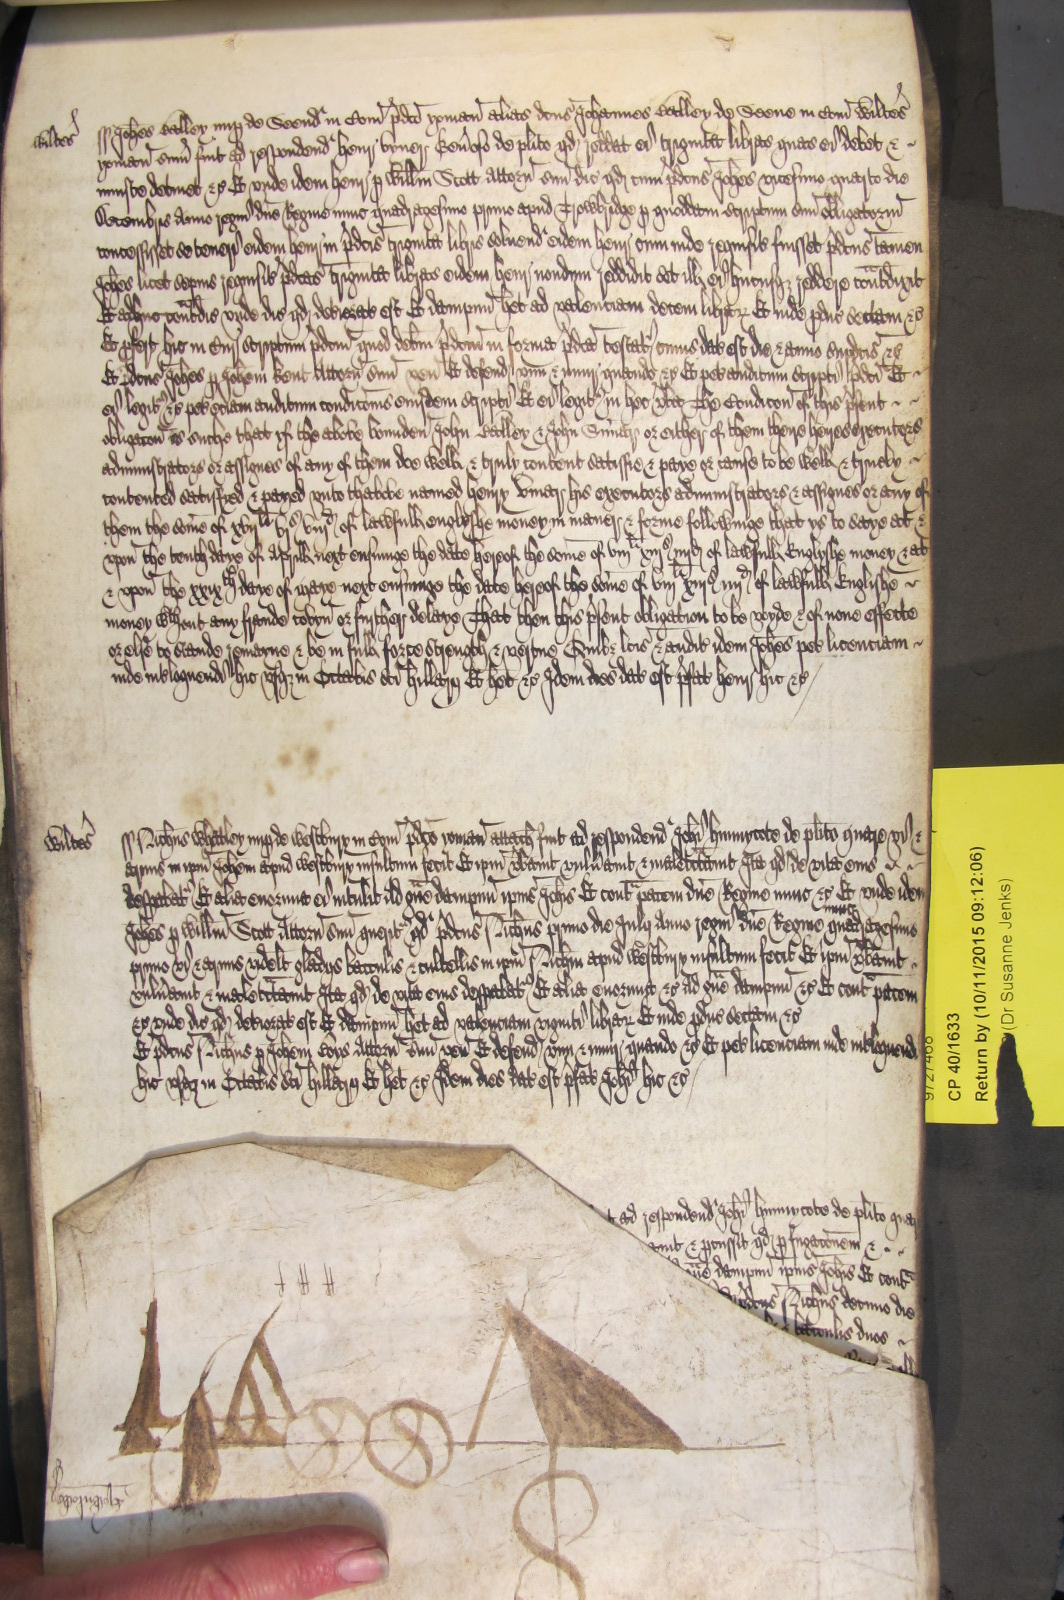 Wiltes
Johes Batley nup de Seend in Com pdco yoman alias dcus Johannes Batley de Seene in Com Wiltes
yoman sum fuit ad respondend Henr Vyner de plito qd reddat ei triginta libras quas ei debet &
iniuste detinet &c Et unde idem Henr p Willm Scott Attorn suu dic qd cum pdcus Johes vicesimo quarto die
Decembris Anno regni dne Regine nunc quadragesimo primo apud Trowbridge p quoddam scriptum suu obligatoriu
concessisset se teneri eidem Henr in pdcis triginta libris solvend eidem Henr cum inde requisit fuisset pdcus tamen
Johes licet sepius requisit pdcas triginta libras eidem Henr nondum reddidit set ill ei hucusq reddere contradixit
Et adhuc contradic unde dic qd deteriorat est Et dampnu het ad valenciam decem librar Et inde pduc sectam &c
Et pfert hic in Cur scriptum pdcum quod debitum pdcum in forma pdca testat cuius dat est die & anno supdcis &c
Et pdcus Johes p Johem Kent Attorn suu ven Et defend vim & iniur quando &c Et pet auditum scripti pdci Et
ei legit &c pet eciam auditum condicionis eiusdem scripti Et ei legit in hec verba The Condicon of this psent
obligacon is suche that yf the above bounden John Batley & John or either of them there heyres executors
administrators or assignes of any of them doe well & truly content satisfie & paye or cause to be well & truely
contented satisfyed & payed unto thabove named Henry his executors administrators & assignes or any of
them the some of xvij li vj s viij d of lawfull englyshe money in maner & forme followinge that ys to saye at &
upon the tenth daye of Aprill next ensuinge the date hereof the some of viij li xiij s iiij d of lawfull Englyshe money & at
& upon the xxix th daye of Maye next ensuinge the date hereof the some of viij li xiij s iiij d of lawfull Englishe
money wthout any fraude covyn or further delaye That then this psent obligation to be voyde & of none effecte
or else to stande remayne & be in full force strength & vertue Quibz lcis & audit idem Johes pet licenciam
inde inloquendi hic usqz in Octabis sci Hillarij Et het &c Idem dies dat est pfat Henr hic &c
Wiltes
Richus Whatley nup de Westbury in Com pdco yoman attach fuit ad respondend Johi Hunnycote de plito quare vi &
armis in ipm Johem apud Westbury insultum fecit Et ipm vberavit vulnavit & maletractavit Ita qd de vita eius
desperabat Et alia enormia ei intulit ad gve dampnu ipius Johis Et cont pacem dne Regine nunc &c Et unde idem
Johes p Willm Scott Attorn suu querit qd pdcus Richus primo die July Anno regni dne Regine nunc quadragesimo
primo vi & armis videlt gladijs baculis & cultellis in ipm apud Westbury insultum fecit Et ipm vberavit
vulnavit & maletractavit Ita qd de vita eius desperabat Et alia enormia &c ad gve dampnu &c Et cont pacem
&c unde dic qd deteriorat est Et dampnu het ad valenciam viginti librar Et inde pduc sectam &c
Et pdcus Richus p Johem Attorn suu ven Et defend vim & iniur quando &c Et pet licenciam inde inloquendi
hic usqz in Octabis sci Hillarij Et het &c Idem dies dat est pfat Johi hic &c
ad respondend Johi Hunnycote de plito quar
& pcussit qd p fugaconem &
gve dampnu ipius Johis Et cont
pdcus Richus decimo die
baculis duos
9727468
CP 40/1633
Return by (10/11/2015 09:12:06)
(Dr Susanne Jenks)